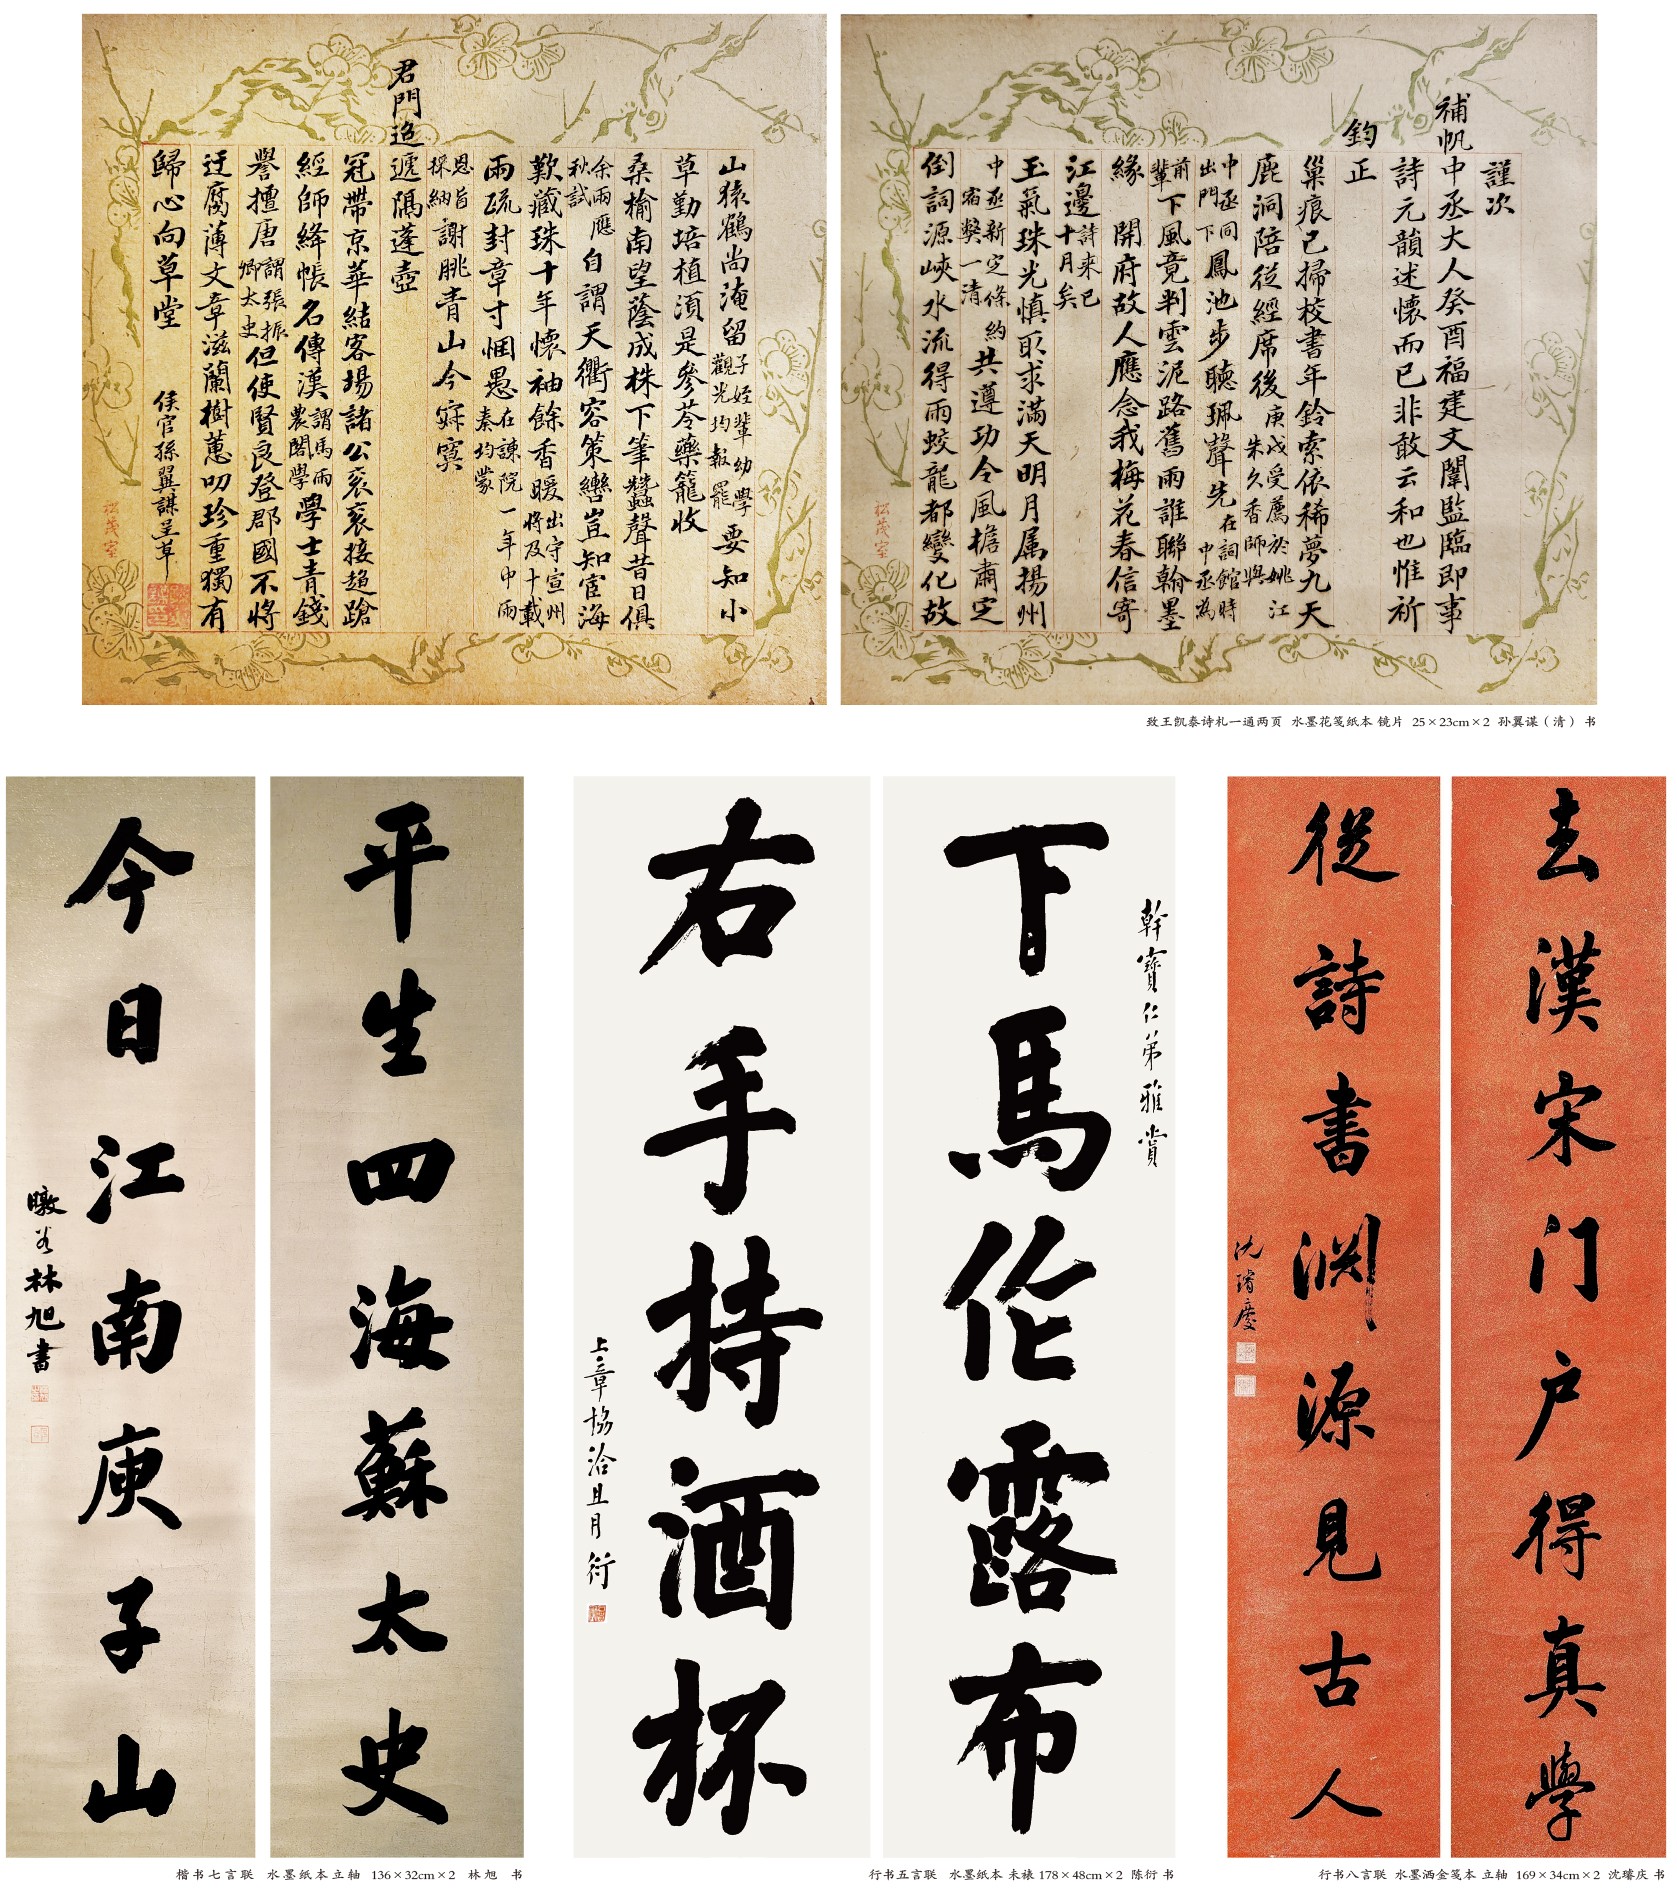 謹次
補帆中丞大人癸酉福建文闈監臨即事
詩元韻述懷而已非敢云和也惟祈
鈞正
巢痕已掃校書年鈴索依稀夢九天
鹿洞陪從經席後庚戌受薦於姚江朱久香師與
中丞同出門下鳳池步聽珮聲先在詞館時中丞為
前輩下風竟判雲泥路舊雨誰聯翰墨
緣開府故人應念我梅花春信寄
江邊詩來已十月矣
玉氣珠光慎取求滿天明月属揚州
中丞新定條約宿弊一清共遵功令風檐肅定
倒詞源峽水流得雨蛟龍都變化故
山猿鶴尚淹留子姪輩幼學觀光均報罷要知小
草勤培植須是參苓藥籠收
桑榆南望蔭成株下筆蠶聲昔日俱
余兩應秋試自謂天衢容策轡豈知宦海
歎藏珠十年懷袖餘香暖出守宣州將及十載
雨疏封章寸悃愚在諫院一年中雨奏均蒙
恩旨採納謝朓青山今寂寞
君門迢遞隔蓬壺
冠帶京華結客場諸公袞袞接趨蹌
經師絳帳名傳漢謂馬雨農閣學學士青錢
譽擅唐謂張振卿太史但使賢良登郡國不將
迂腐薄文章滋蘭樹蕙叨珍重獨有
歸心向草堂
侯官孫翼謀呈草
松茂室
松茂室
致王凯泰诗札一通两页 水墨花笺纸本 镜片 25×23cm×2 孙翼谋（清） 书
平生四海蘇太史
今日江南庾子山
暾谷林旭書
楷书七言联 水墨纸本 立轴 136×32cm×2 林旭 书
幹寶仁弟雅賞
下馬作露布
右手持酒杯
上章協洽且月 衍
行书五言联 水墨纸本 未裱 178×48cm×2 陈衍 书
去漢宋门户得真學
從詩書渊源見古人
沈瑜慶
行书八言联 水墨洒金笺本 立轴 169×34cm×2 沈瑜庆 书